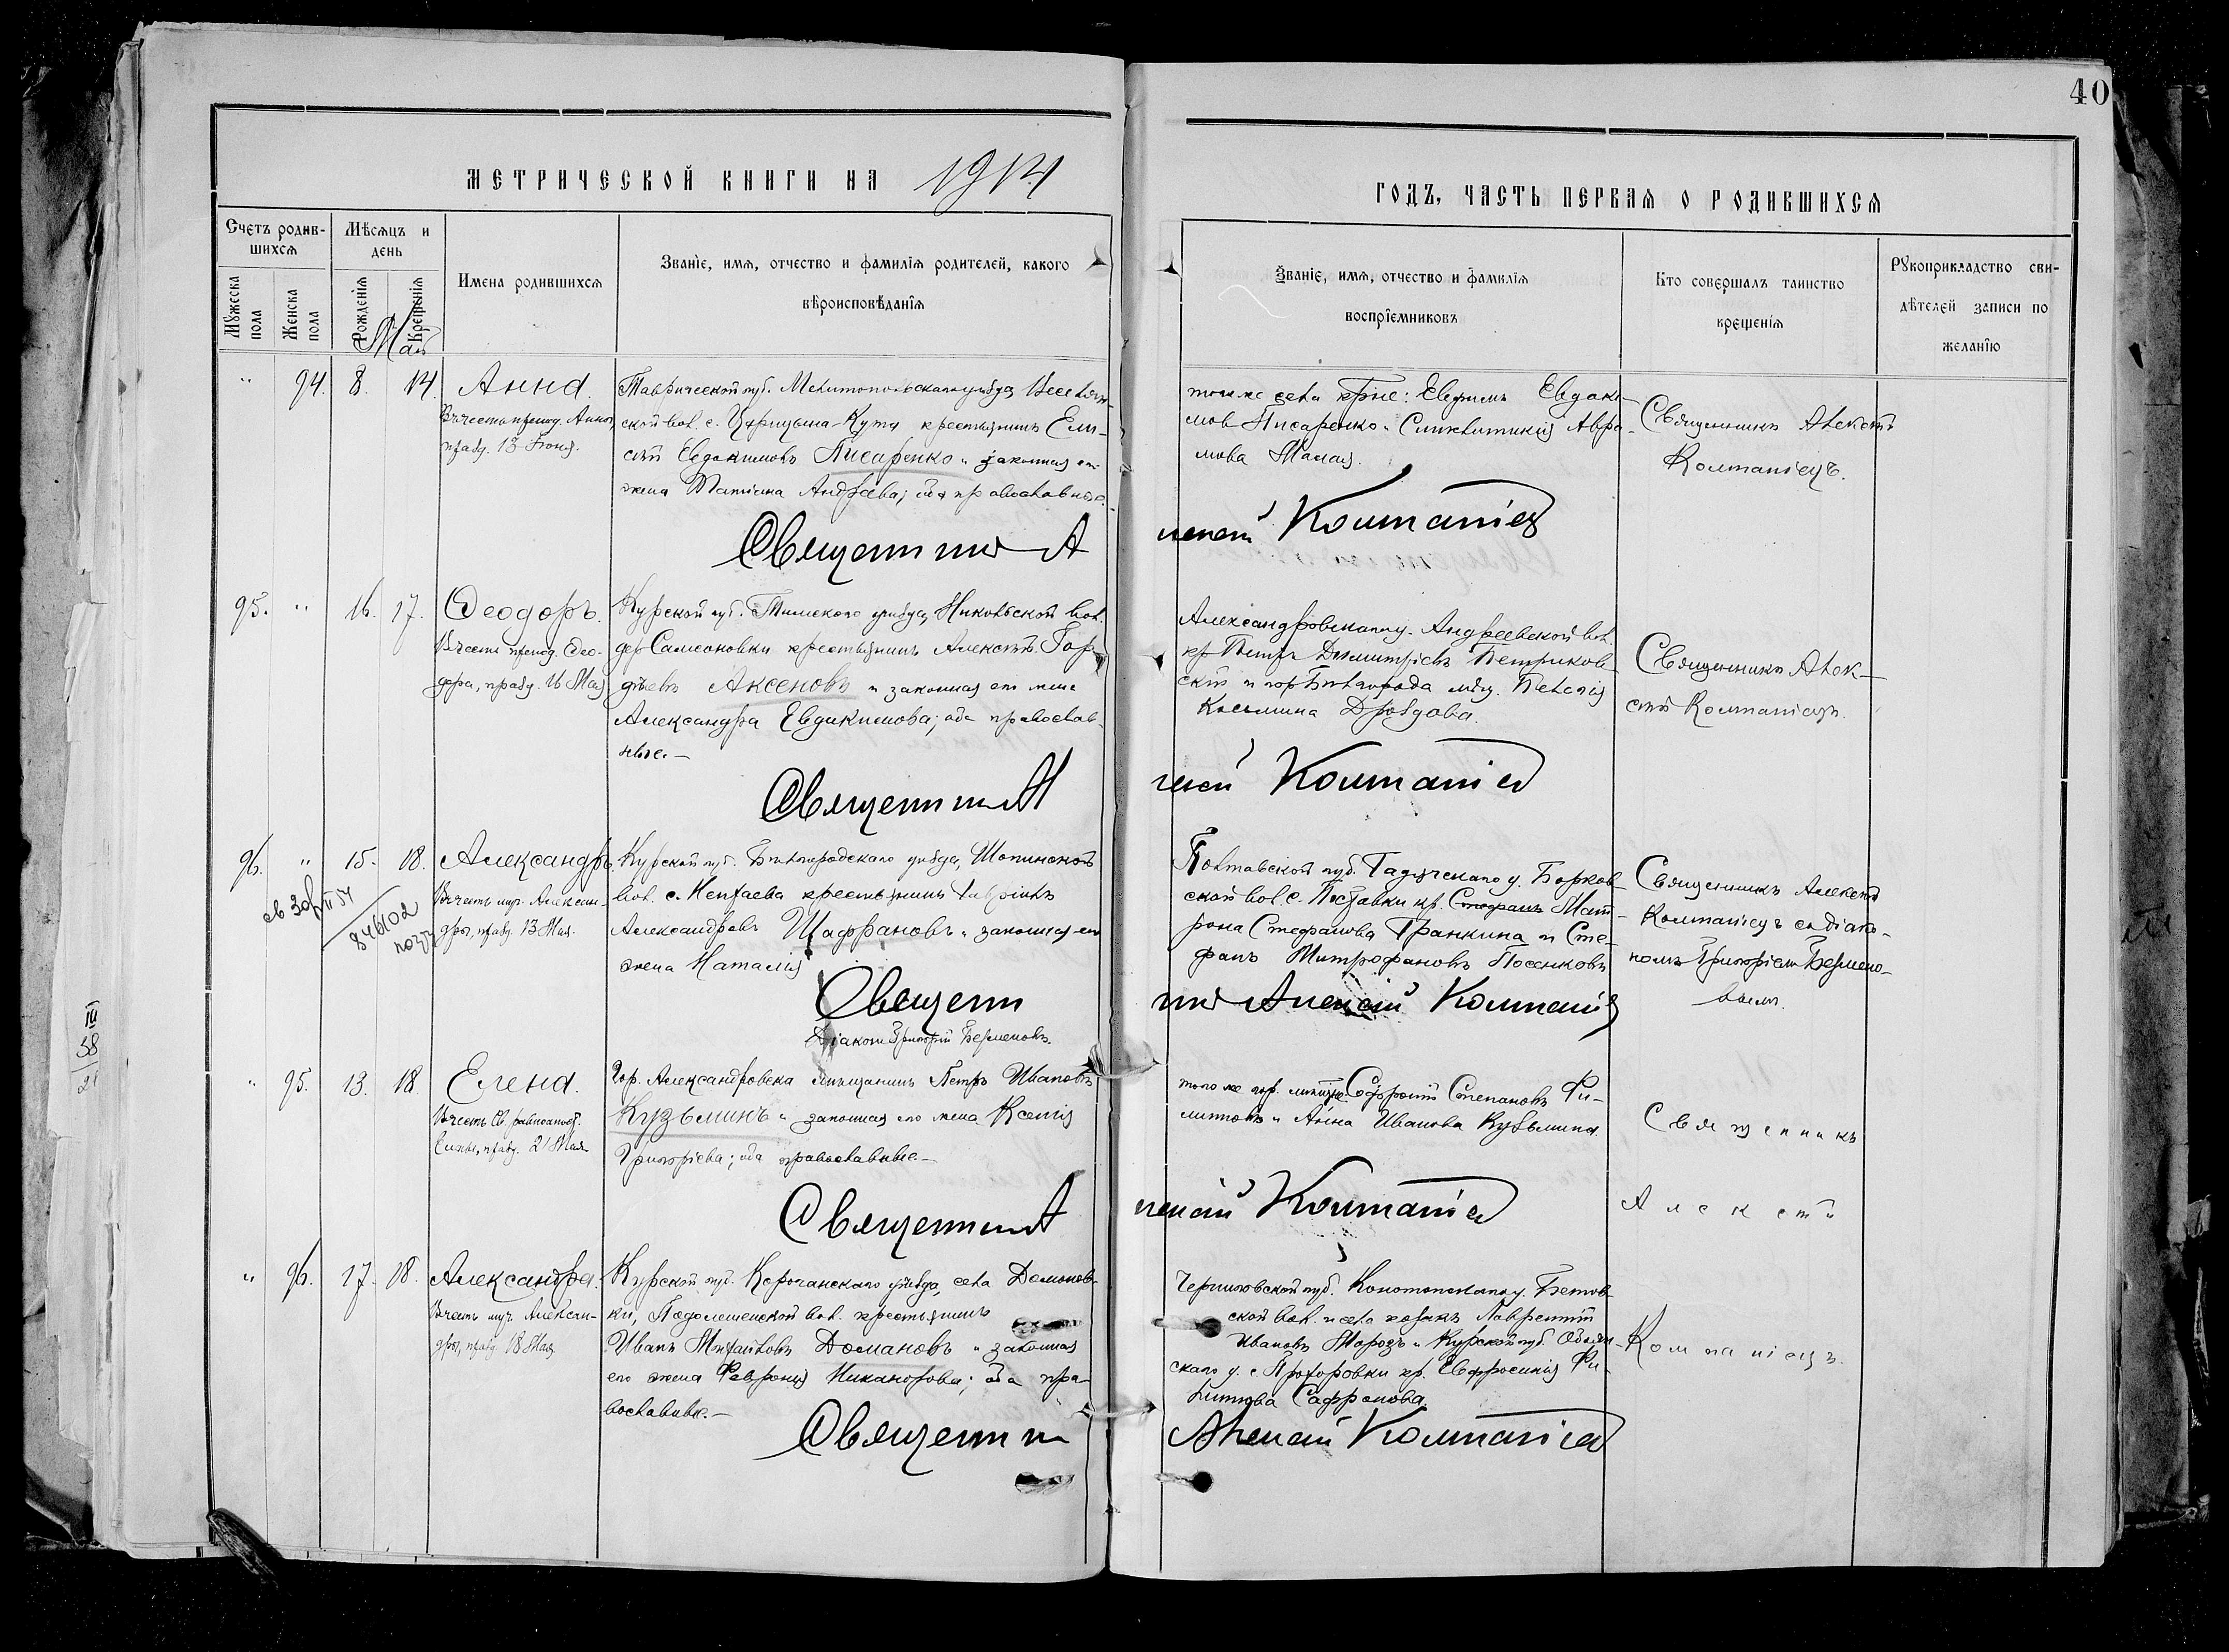 40
МЕТРИЧЕСКОЙ КНИГИ НА 1914
ГОДЪ, ЧАСТЬ ПЕРВАЯ О РОДИВШИХСЯ
Счетъ родив-
шихся
Мѣсяцъ и
день
Мужеска
пола
Женска
пола
Рожденія
Крещенія
Имена родившихся
Званіе, имя, отчество и фамилія родителей, какого
вѣроисповѣданія
Званіе, имя, отчество и фамилія
воспріемниковъ
Кто совершалъ таинство
крещенія
Рукоприкладство сви-
дѣтелей записи по
желанію
Май
" 94. 8. 14. Анна.
Въ честь препод. Анны,
празд. 13 Іюня.
Таврической губ. Мелитопольскаго уѣзда, Веселян-
ской вол. с. Царицына-Кута крестьянинъ Ели-
сѣй Евдокимовъ Писаренко и законная его
жена Татіана Андреева; оба православные.
того же села крне: Евфимъ Евдоки-
мов Писаренко и Синклитикія Авра-
мова
Священникъ Алексѣй
Колтапіецъ.
Священникъ А
лексѣй Колтапіец
95. " 16. 17. Ѳеодоръ.
Въ честь препод. Ѳео-
дора, празд. 16 Мая
Курской губ. Тимскаго уѣзда, Никольской вол.
дер. Самсоновки крестьянинъ Алексѣй Гор-
дѣевъ Аксеновъ и законная его жена
Александра Евдокимова; оба православ-
ные.—
Александровскаго у. Андреевской вол.
кр. Петръ Димитріевъ Петриков-
скій и гор. Бѣлгорода мѣщ. Пелагія
Косьмина Дроздова.
Священникъ Алек-
сѣй Колтапіецъ.
Священник А
лексѣй Колтапіец
96. " 15. 18. Александръ.
Въ честь муч. Алексан-
дра, празд. 13 Мая.
Курской губ. Бѣлгородскаго уѣзда, Шопинской
вол. с. крестьянинъ Гавріилъ
Александровъ Шафрановъ и законная его
жена Наталія
Полтавской губ. Гадячскаго у. Борков-
ской вол. с. Поставки кр. Стефанъ Мат-
рона Стефанова Гранкина и Сте-
фанъ Митрофановъ Посенковъ
Священникъ Алексѣй
Колтапіецъ съ діако-
номъ Григоріем Бермено-
вымъ.
Священ
ник Алексѣй Колтапіец
Діаконъ Григорій Берменовъ.
846102
III
58
21
" 95. 13. 18. Елена.
Въ честь Св. равноапост.
Елены, празд. 21 Мая
Гор. Александровска мѣщанинъ Петръ Ивановъ
Кузьминъ и законная его жена Ксенія
Григоріева; оба православные.—
того же гор. мѣщане: Софроній Степановъ Фи-
липповъ и Анна Иванова Кузьмина.
Священникъ
Священник А
лексѣй Колтапіец
Алексѣй
" 96. 17. 18. Александра.
Въ честь муч. Алексан-
дры, празд. 18 Мая
Курской губ. Корочанскаго уѣзда, села Доманов-
ки, вол. крестьянинъ
Иванъ Михайловъ Домановъ и законная
его жена Февронія Никанорова; оба пра-
вославные.—
Черниговской губ. Конотопскаго у.
ской вол. и села козакъ Лаврентій
Ивановъ Морозъ и Курской губ. Обоян-
скаго у. с. Прохоровки кр. Евфросинія Фи-
липпова Сафронова.
Колтапіецъ.
Священник
Алексѣй Колтапіец